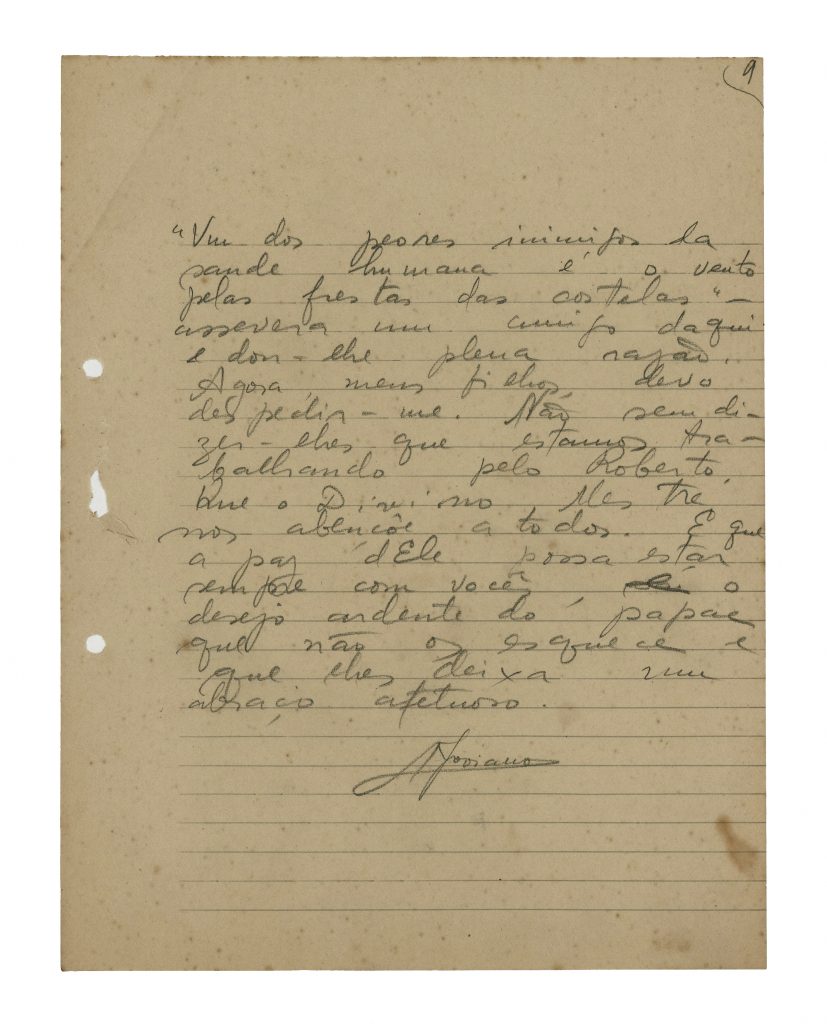 9
"Um dos peores inimigos da
saude humana é o vento
pelas frestas das costelas" –
assevera um amigo daqui
e dou-lhe plena razão.
Agora, meus filhos, devo
despedir-me. Não sem di-
zer-lhes que estamos tra-
balhando pelo Roberto.
Que o Divino Mestre
nos abençôe a todos. E que
a paz dEle possa estar
sempre com vocês, é o
desejo ardente do papae
que não os esquece e
que lhes deixa um
abraço afetuoso.